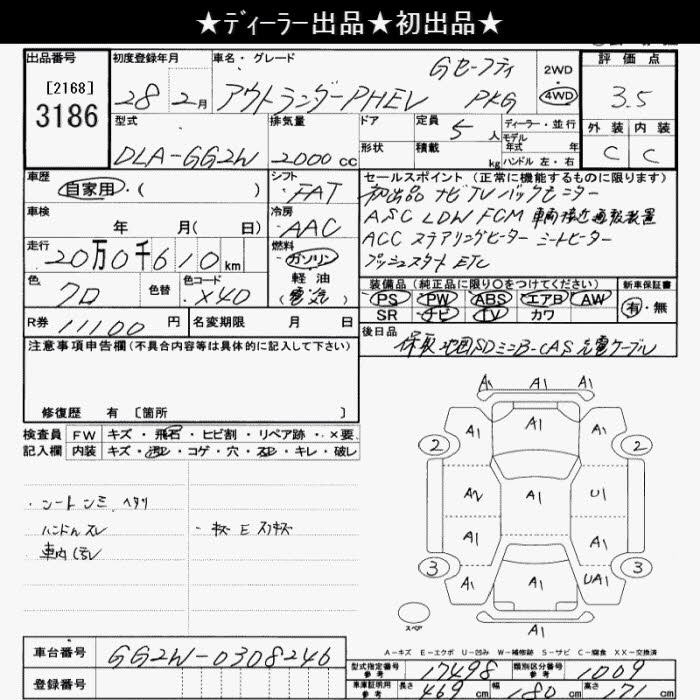 ★ディーラー出品★初出品★
出品番号 初度登録年月 車名・グレード 評価点
[2168]
3186
28年 2月 アウトランダーPHEV Gセーフティ PKG 2WD 4WD 3.5
型式 排気量 ドア 定員 5人 ディーラー・並行 外装 内装
モデル年式 年
DLA-GG2W 2000cc 形状 積載 kg ハンドル 左・右 C C
車歴 シフト セールスポイント (正常に機能するものに限ります)
自家用・( ) FAT 初出品 ナビTVバックモニター
車検 冷房 ASC LDW FCM 車両接近通報装置
年 月( 日) AAC ACC ステアリングヒーター シートヒーター
走行 燃料 プッシュスタート ETC
20万0千610km ガソリン
軽油
(電気)
色 色替 色コード 装備品 (純正品に限り○をつけてください) 新車保証書
クロ X40 PS PW ABS エアB AW 有・無
SR ナビ TV カワ
R券 11100円 名変期限 月 日 後日品
保取 地図SD ミニB-CAS 充電ケーブル
注意事項申告欄(不具合内容等は具体的に記入して下さい)
修復歴 有 [箇所 ]
検査員 FW キズ・飛石・ヒビ割・リペア跡・×要
記入欄 内装 キズ・汚レ・コゲ・穴・スレ・キレ・破レ
・シートシミ、ヘタリ
ハンドルスレ ・キズ E スリキズ
車内汚レ
A1 A1 A1
A1 A1 A1
2 2
A2 A1 U1
A1 A1
3 3
A1 A1 UA1
スペア
A1
A-キズ E-エクボ U-凹み W-補修跡 S-サビ C-腐食 XX-交換済
車台番号 GG2W-0308246
登録番号
型式指定番号 参考 17498 類別区分番号 参考 1009
車庫証明用 参考 長さ 469cm 幅 180cm 高さ 171cm